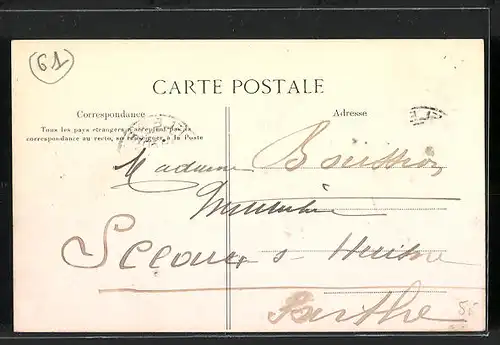 61
CARTE POSTALE
Correspondance
Adresse
Tous les pays étrangers n'acceptent pas la
correspondance au recto, se renseigner à la Poste
Madame
Sceaux s Huisne
Sarthe